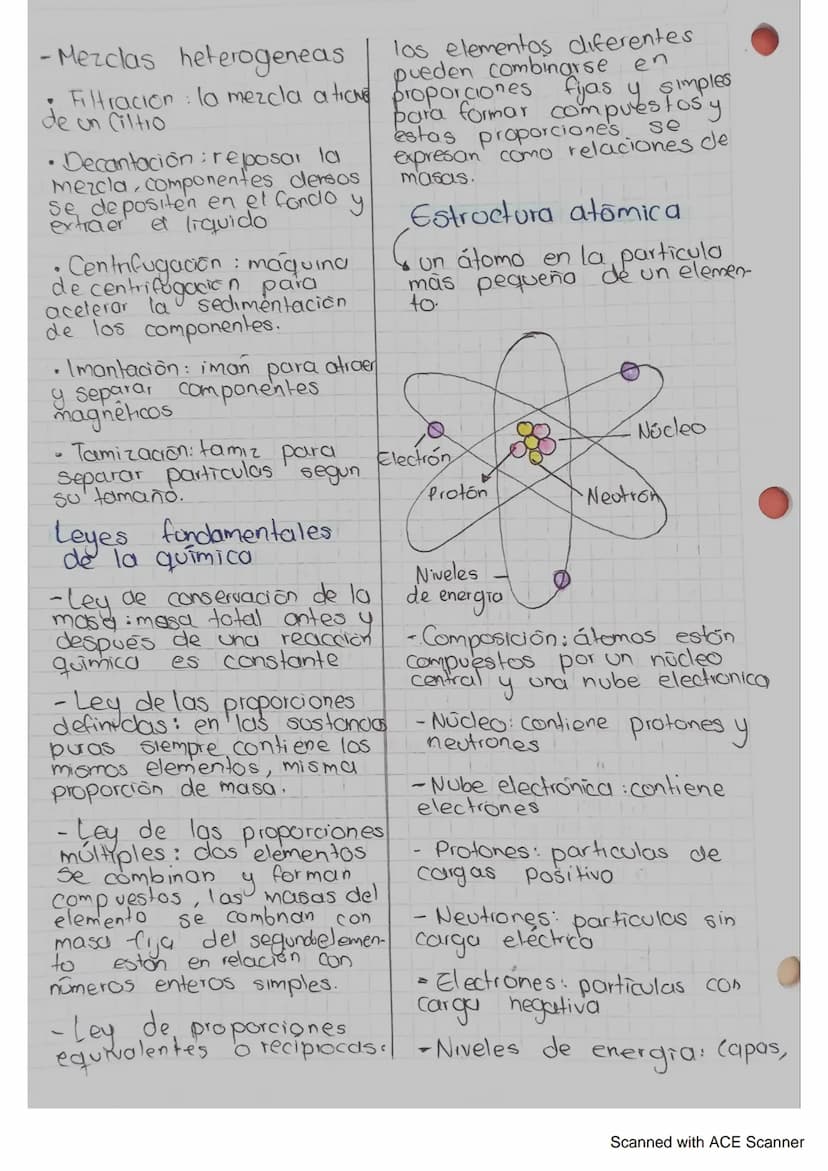 - Mezclas heterogeneas
• Filtración: la mezcla a
de un filtro
• Decantación: reposar la
mezcla, componentes densos
se depositen en el fondo y
extraer el liquido
• Centrifugación: máquina
de centrifugación para
acelerar la sedimentación
de los componentes.
• Imantación: imán para atraer
y separar componentes
magnéticos
• Tamización: tamiz para
separar particulas segun
su tamaño.
Leyes fundamentales
de la química
- Ley de conservación de la
masa: masa total antes y
después de una reacción
química es constante
- Ley de las proporciones
definidas: en las sustancias
puras siempre contiene los
mismos elementos, misma
proporción de masa.
- Ley de las proporciones
múltiples: dos elementos
se combinan y forman
compuestos, las masas del
elemento se combnan con
masa fija del segundelemen-
to están en relación con
números enteros simples.
- Ley de proporciones
equivalentes o reciprocas:
los elementos diferentes
pueden combinarse en
proporciones fijas y simples
para formar compuestos y
estas proporciones se
expresan como relaciones de
masas.
Estructura atómica
un átomo en la particula
más pequeña de un elemen-
to.
Electrón
Protón
Núcleo
Neutrón
Niveles
de energia
- Composición: átomos están
compuestos por un núcleo
central y una nube electronica
- Núcleo: contiene protones y
neutrones
- Nube electrónica: contiene
electrones
- Protones: particulas de
cargas positivo
- Neutrones: particulas sin
carga eléctrica
- Electrones: particulas con
carga negativa
- Niveles de energía: capas,
Scanned with ACE Scanner